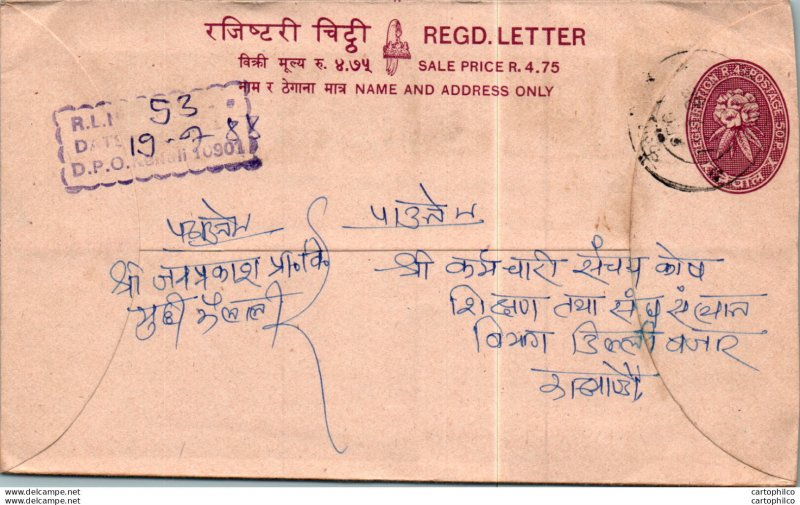 रजिष्टरी चिट्ठी REGD. LETTER
बिक्री मूल्य रु. ४.७५ SALE PRICE R. 4.75
नाम र ठेगाना मात्र NAME AND ADDRESS ONLY
R.L. 53
DATE 19-7-88
D.P.O. Kailali 10901
REGISTRATION R.4 POSTAGE 50 P.
पठाउने
श्री जयप्रकाश प्रा.वि.
कैलाली
पाउने
श्री कर्मचारी संचय कोष
शिक्षण तथा संघ संस्थान
विभाग डिल्ली बजार
काठमाडौं
www.delcampe.net
cartophilco
cartophilco